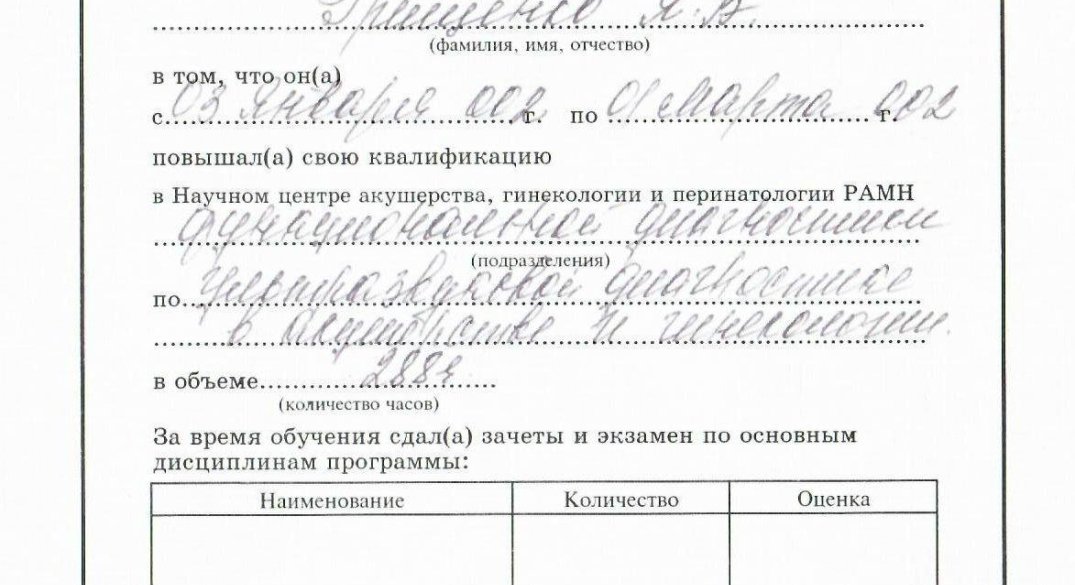 Грищенко Я. В.
(фамилия, имя, отчество)
в том, что он(а)
с 03 января 002 г. по 01 марта 002 г.
повышал(а) свою квалификацию
в Научном центре акушерства, гинекологии и перинатологии РАМН
функциональной диагностики
(подразделения)
по ультразвуковой диагностике
в акушерстве и гинекологии.
в объеме 288ч
(количество часов)
За время обучения сдал(а) зачеты и экзамен по основным
дисциплинам программы:
Наименование Количество Оценка